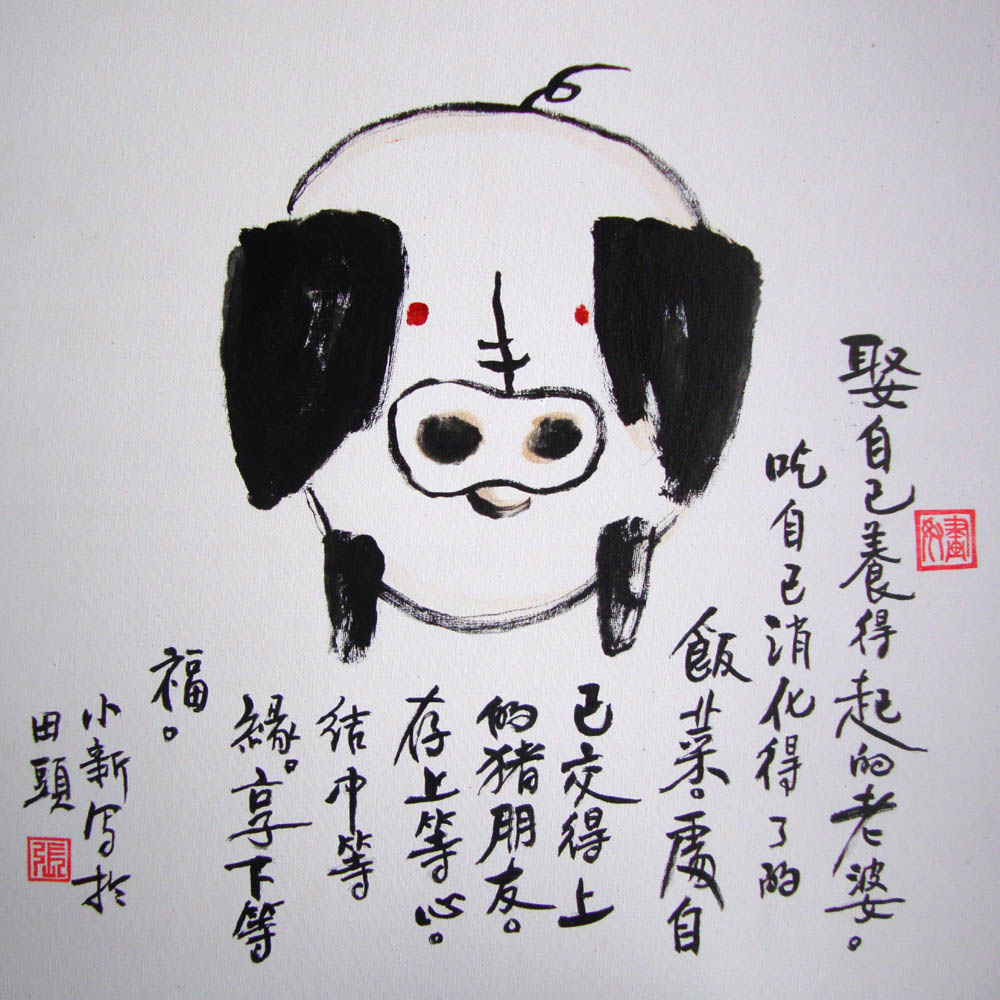 娶自己養得起的老婆。
吃自己消化得了的
飯菜。處自
己交得上
的猪朋友。
存上等心。
结中等
緣。享下等
福。
小新写於
田頭
張